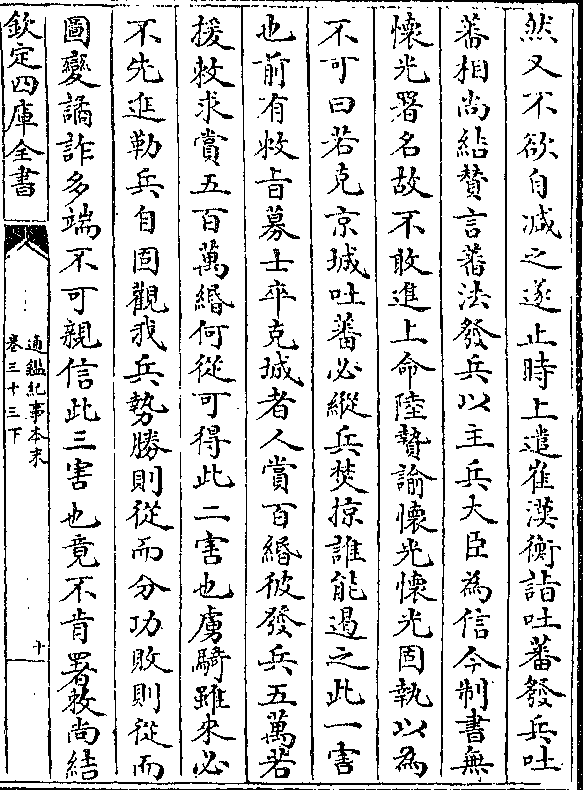 然又不欲自減之遂止時上遣崔漢衡詣吐蕃發兵吐
蕃相尚結賛言蕃法發兵以主兵大臣為信今制書無
懷光署名故不敢進上命陸贄諭懷光懷光固執以為
不可曰若克京城吐蕃必縱兵焚掠誰能遏之此一害
也前有敕旨募士卒克城者人賞百緡彼發兵五萬若
援敕求賞五百萬緡何從可得此二害也虜騎雖來必
不先進勒兵自固觀我兵勢勝則從而分功敗則從而
圖變譎詐多端不可親信此三害也竟不肯署敕尚結
欽定四庫全書
通鑑紀事本末
卷三十三下
十